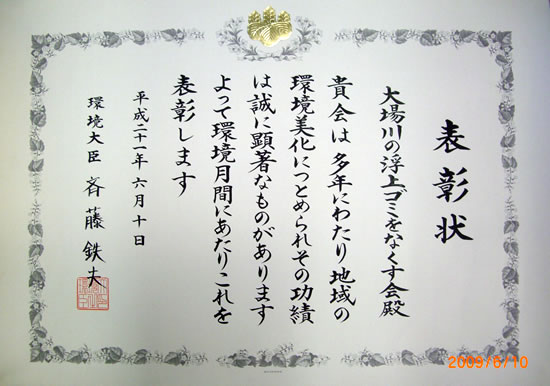 表彰状
大場川の浮上ゴミをなくす会殿
貴会は多年にわたり地域の
環境美化につとめられその功績
は誠に顕著なものがあります
よって環境月間にあたりこれを
表彰します
平成二十一年六月十日
環境大臣 斉藤鉄夫
2009/6/10